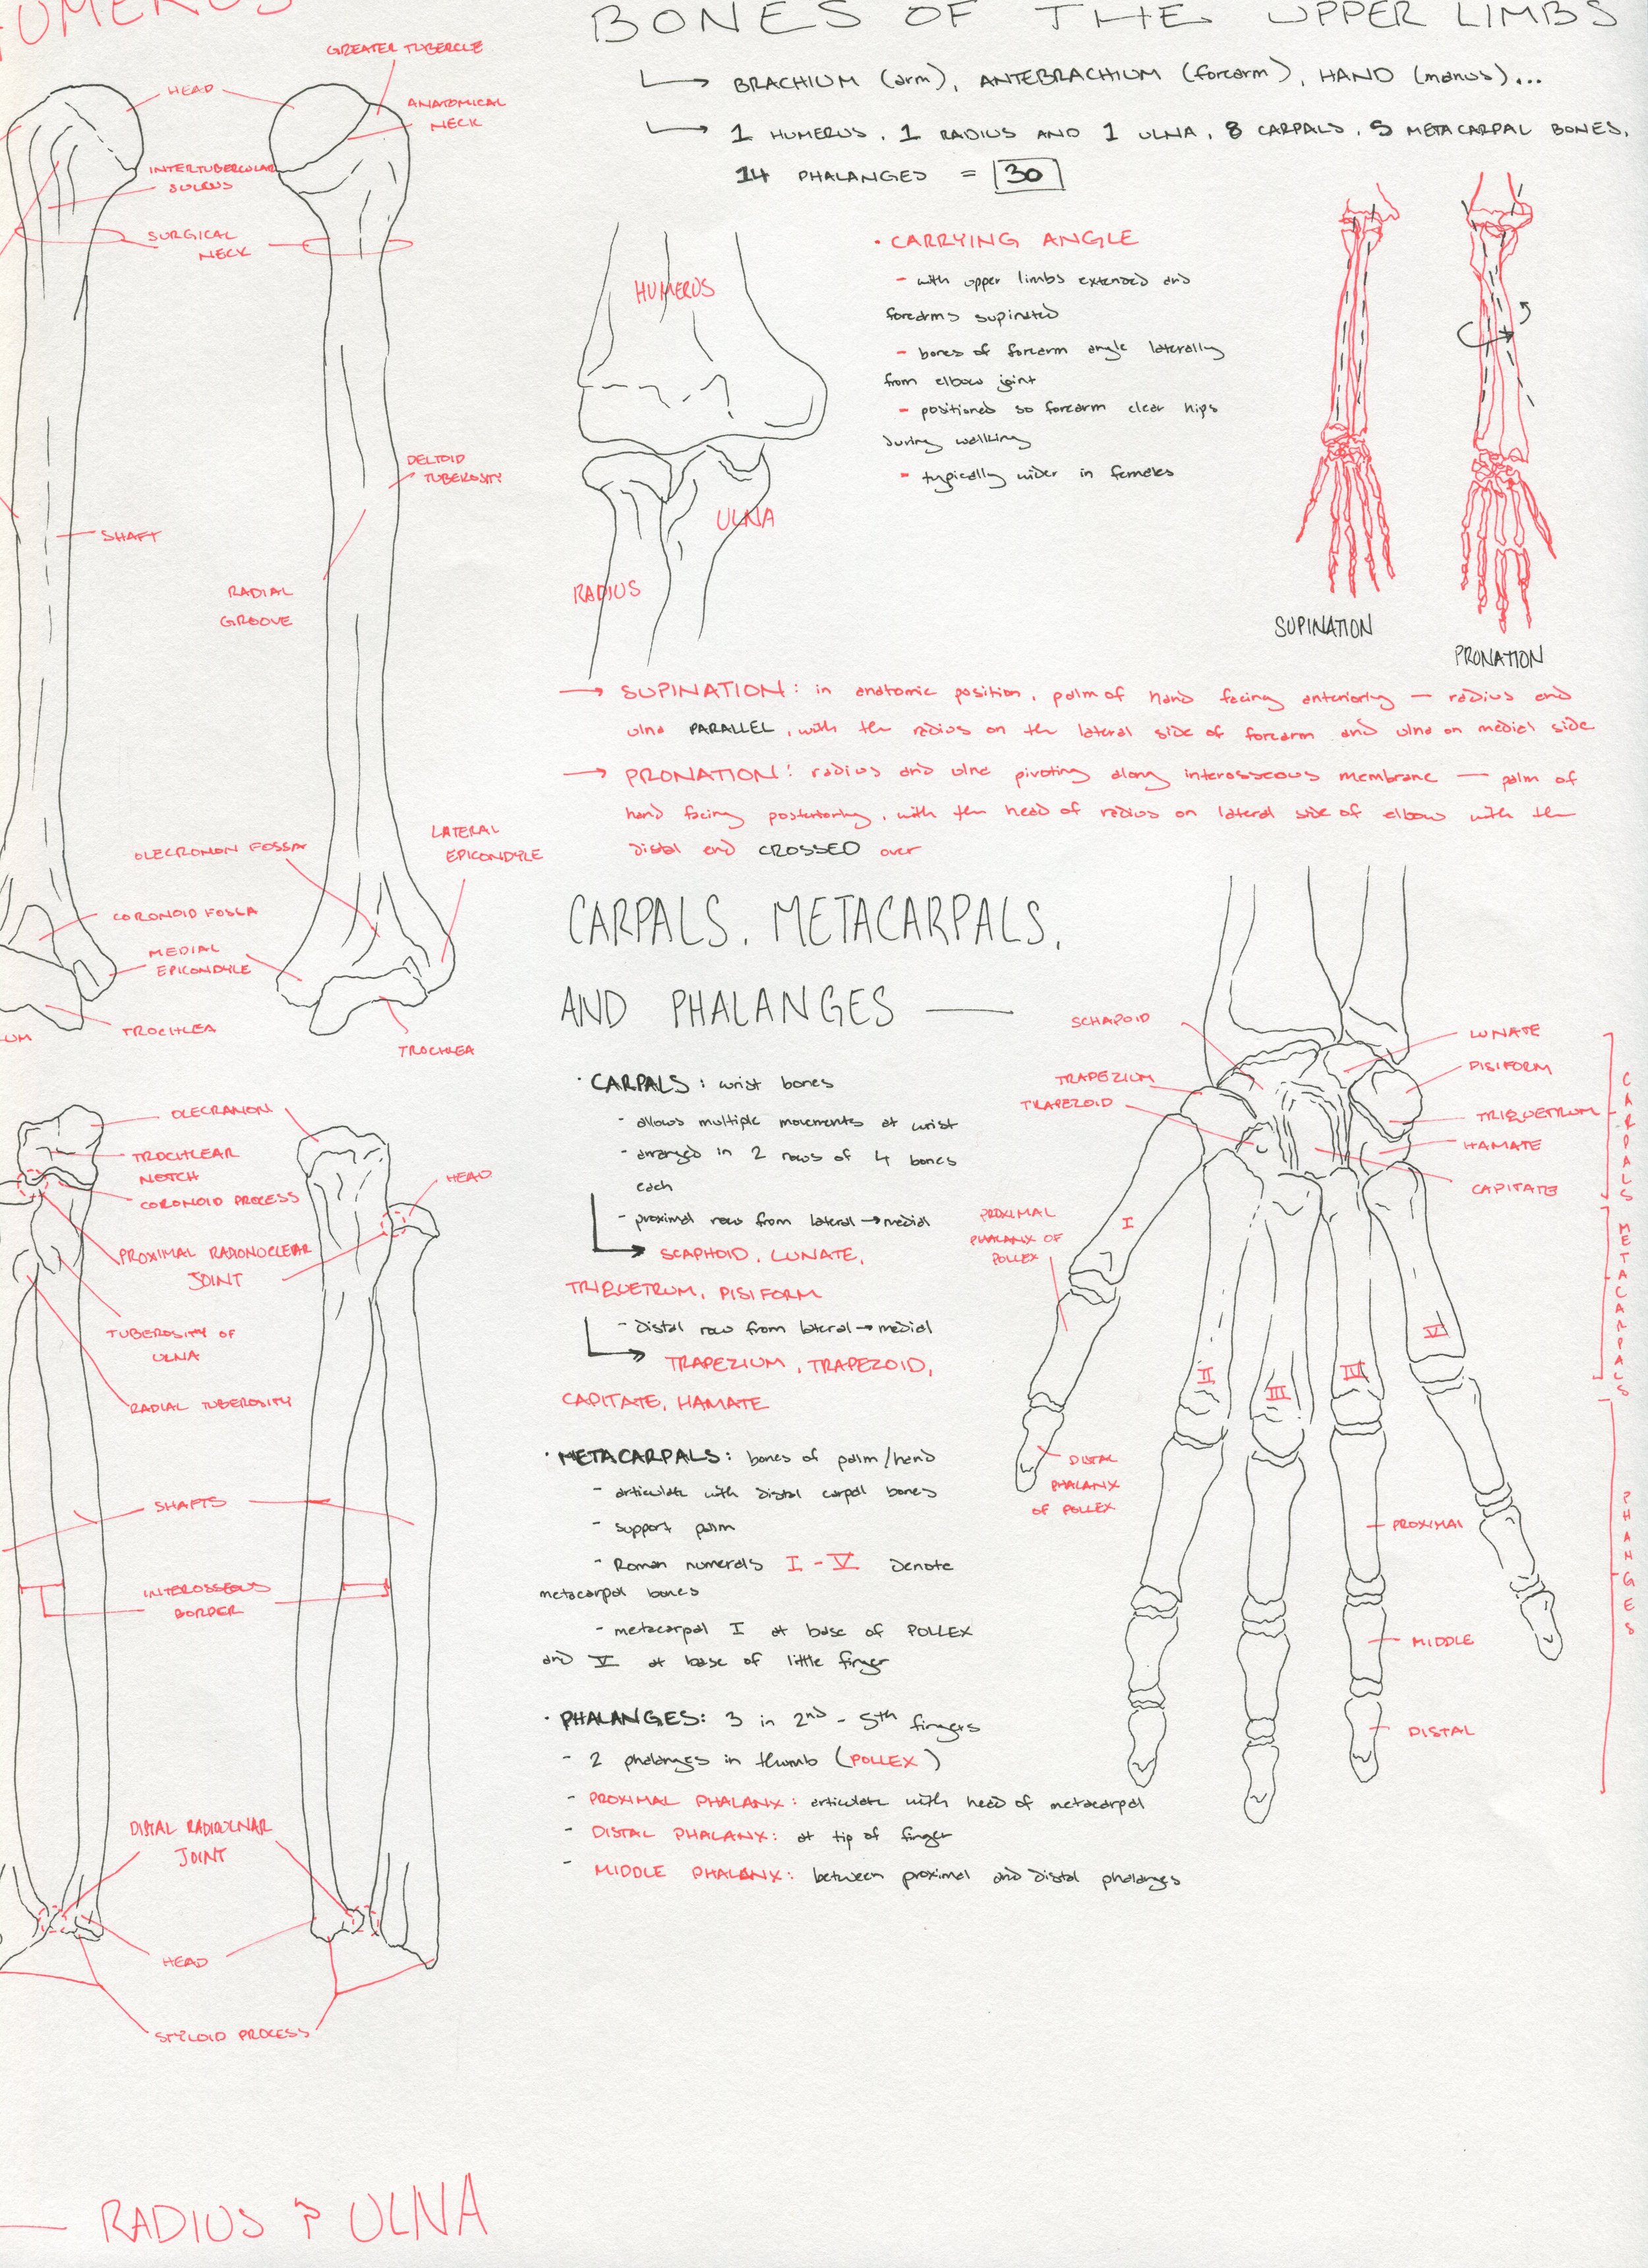 HUMERUS
GREATER TUBERCLE
HEAD
ANATOMICAL
NECK
INTERTUBERCULAR
SULCUS
SURGICAL
NECK
DELTOID
TUBEROSITY
SHAFT
RADIAL
GROOVE
LATERAL
EPICONDYLE
OLECRONON FOSSA
CORONOID FOSSA
MEDIAL
EPICONDYLE
TROCHLEA
UM
TROCHLEA
OLECRANON
TROCHLEAR
NOTCH
HEAD
CORONOID PROCESS
PROXIMAL RADIONUCLEAR
JOINT
TUBEROSITY OF
ULNA
RADIAL TUBEROSITY
SHAFTS
INTEROSSEOUS
BORDER
DISTAL RADIOULNAR
JOINT
HEAD
STYLOID PROCESS
RADIUS & ULNA
BONES OF THE UPPER LIMBS
→ BRACHIUM (arm), ANTEBRACHIUM (forearm), HAND (manus)...
→ 1 HUMERUS, 1 RADIUS AND 1 ULNA, 8 CARPALS, 5 METACARPAL BONES,
14 PHALANGES = 30
HUMERUS
ULNA
RADIUS
• CARRYING ANGLE
- with upper limbs extended and
forearms supinated
- bones of forearm angle laterally
from elbow joint
- positioned so forearm clear hips
during walking
- typically wider in females
SUPINATION
PRONATION
→ SUPINATION: in anatomic position, palm of hand facing anteriorly — radius and
ulna PARALLEL, with the radius on the lateral side of forearm and ulna on medial side
→ PRONATION: radius and ulna pivoting along interosseous membrane — palm of
hand facing posteriorly, with the head of radius on lateral side of elbow with the
distal end CROSSED over
CARPALS, METACARPALS,
AND PHALANGES —
• CARPALS: wrist bones
- allows multiple movements at wrist
- arranged in 2 rows of 4 bones
each
- proximal row from lateral → medial
→ SCAPHOID, LUNATE,
TRIQUETRUM, PISIFORM
- distal row from lateral → medial
→ TRAPEZIUM, TRAPEZOID,
CAPITATE, HAMATE
• METACARPALS: bones of palm/hand
- articulate with distal carpal bones
- support palm
- Roman numerals I - V denote
metacarpal bones
- metacarpal I at base of POLLEX
and V at base of little finger
• PHALANGES: 3 in 2nd - 5th fingers
- 2 phalanges in thumb (POLLEX)
- PROXIMAL PHALANX: articulate with head of metacarpal
- DISTAL PHALANX: at tip of finger
- MIDDLE PHALANX: between proximal and distal phalanges
SCHAPOID
TRAPEZIUM
TRAPEZOID
LUNATE
PISIFORM
TRIQUETRUM
HAMATE
CAPITATE
CARPALS
PROXIMAL
PHALANX OF
POLLEX
I
II
III
IIII
V
METACARPALS
DISTAL
PHALANX
OF POLLEX
PROXIMAL
MIDDLE
DISTAL
PHANGES